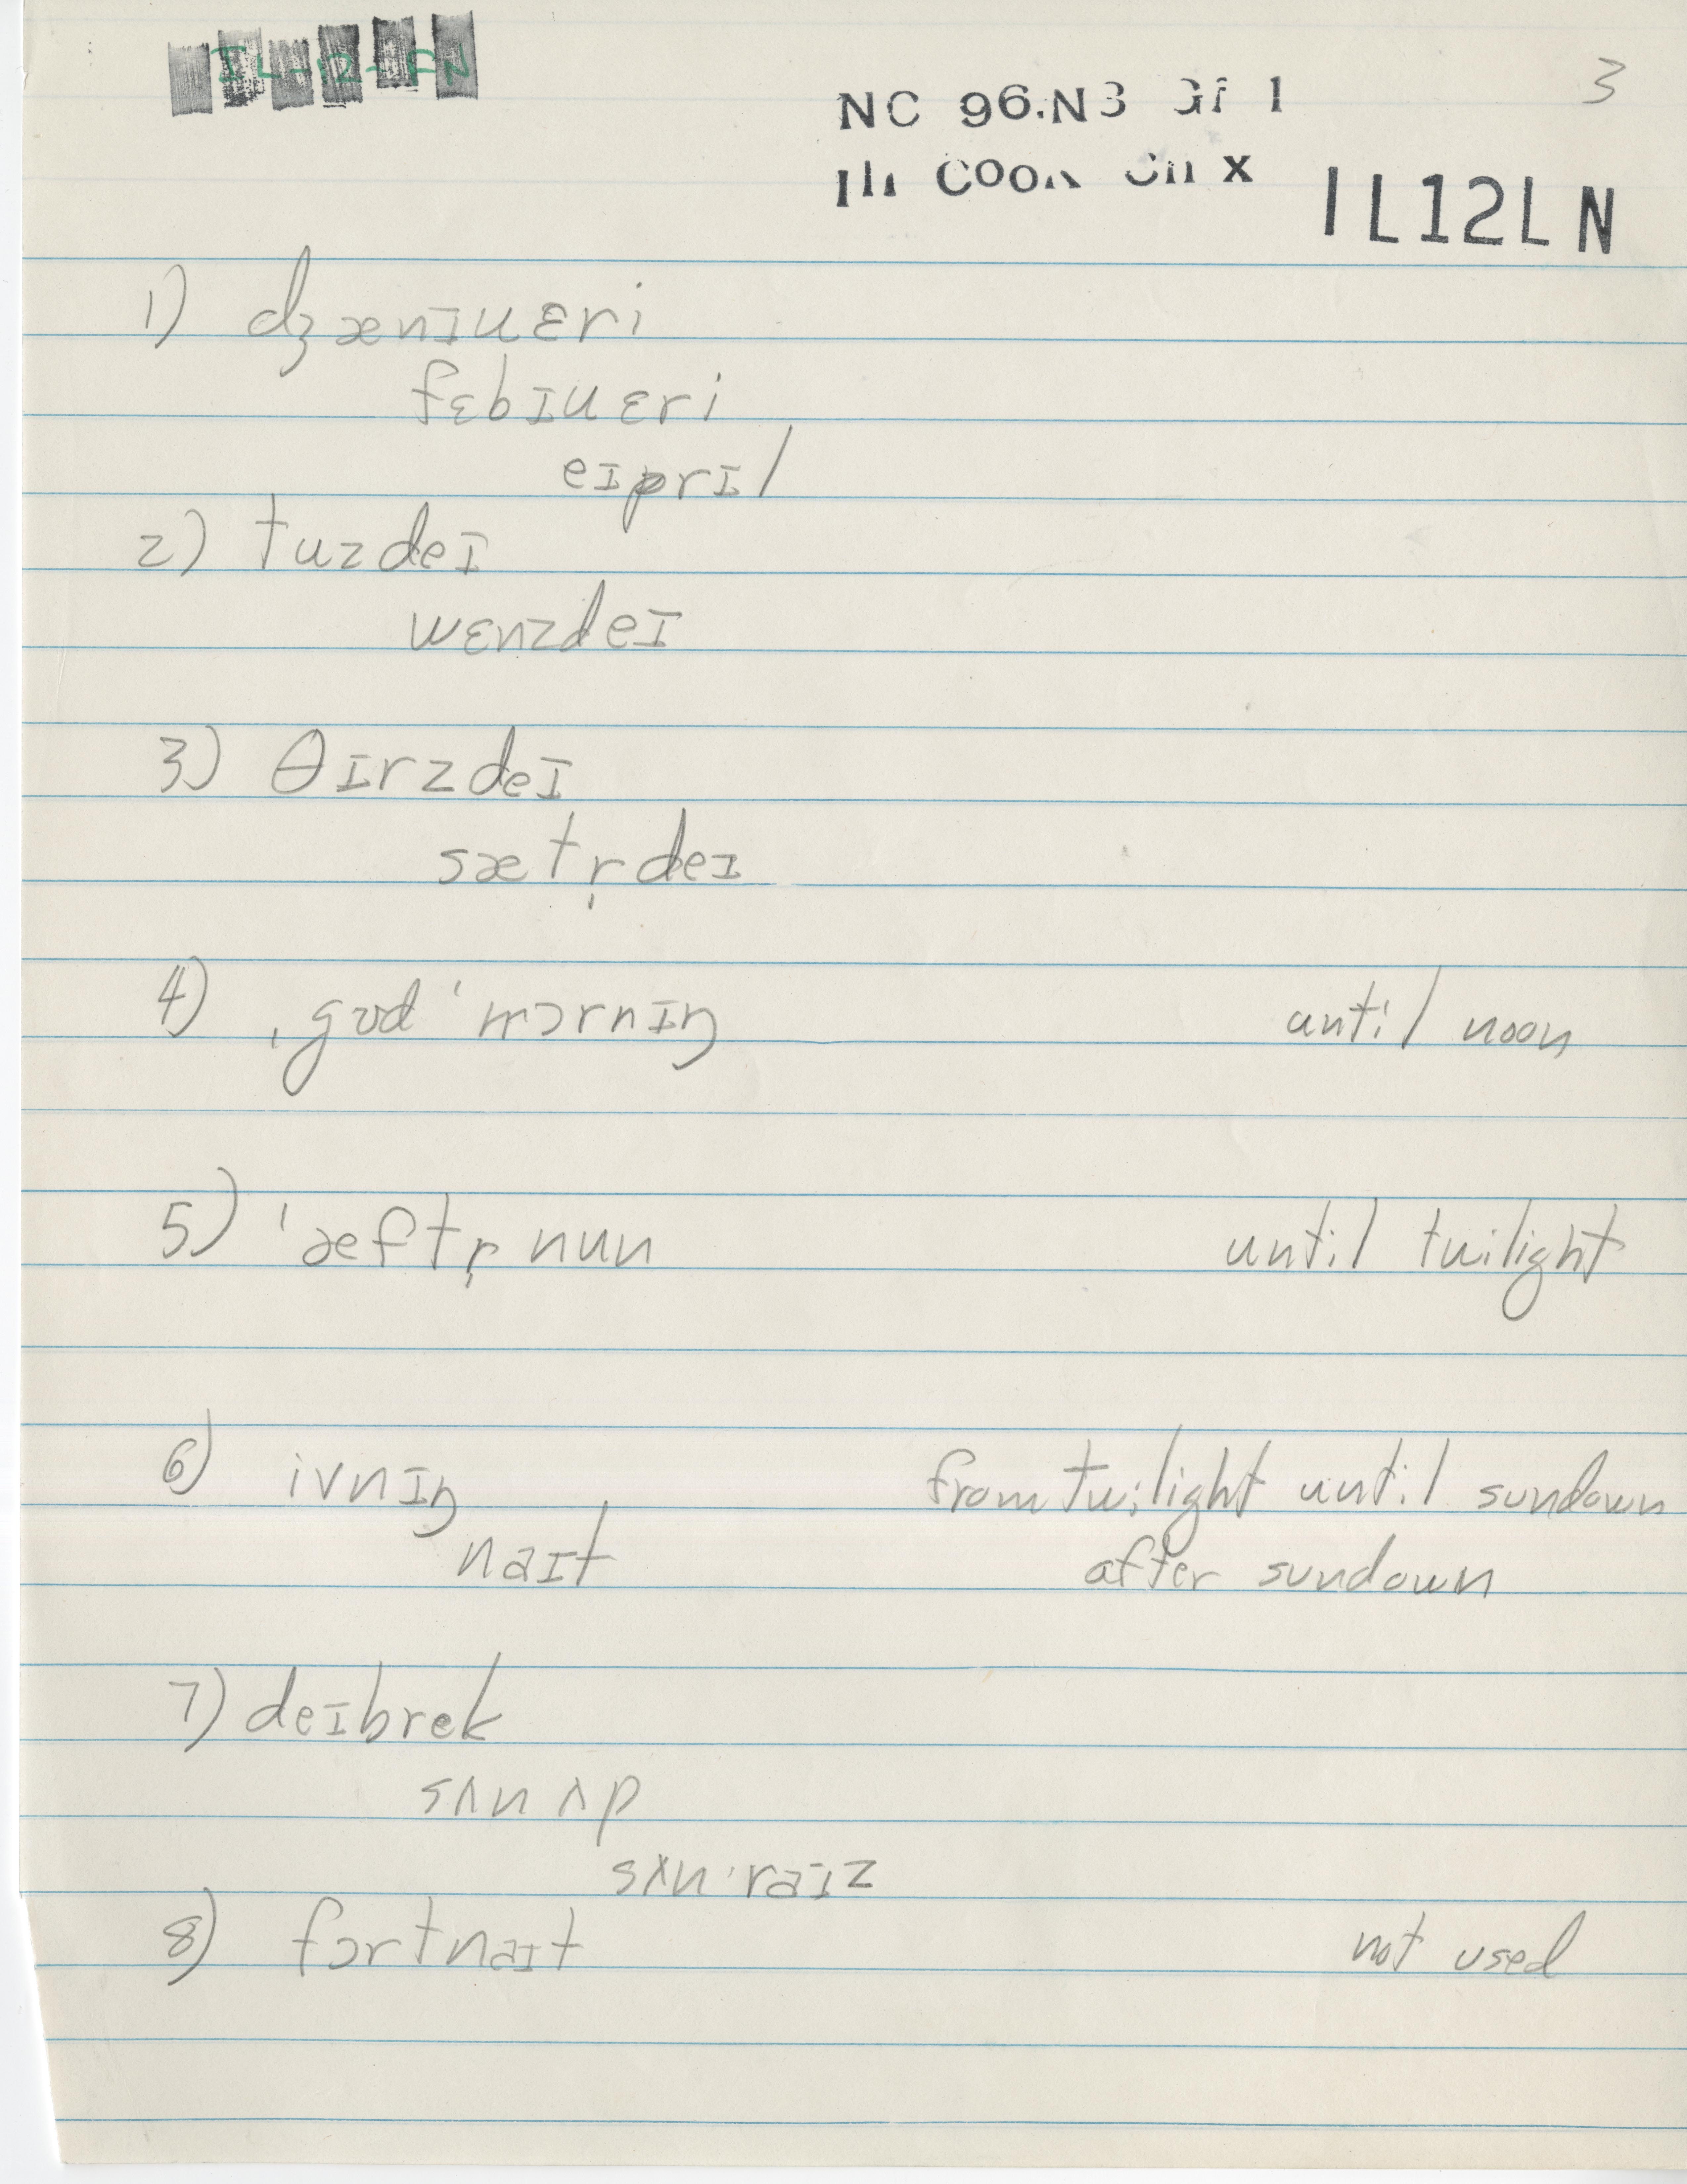 3
NC 96.N3
COOK x
IL12LN
1) dʒænɪuɛri
fɛbɪuɛri
eɪprɪl
2) tuzdeɪ
wɛnzdeɪ
3) θɪrzdeɪ
sætr̩deɪ
4) ˌgʊd ˈmɔrnɪŋ until noon
5) ˈæftr̩nun until twilight
6) ivnɪŋ from twilight until sundown
naɪt after sundown
7) deɪbrek
sʌnʌp
sʌnˈraɪz
8) fɔrtnaɪt not used